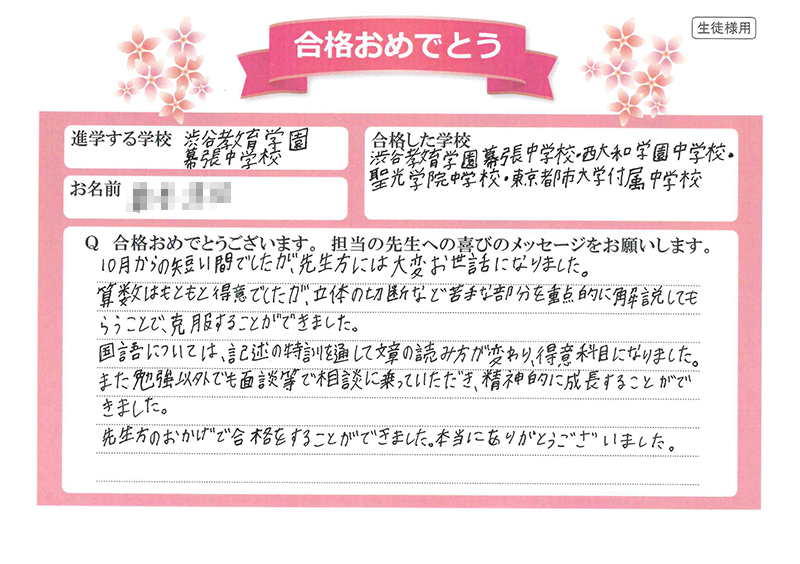 生徒様用
合格おめでとう
進学する学校 渋谷教育学園
幕張中学校
合格した学校
渋谷教育学園幕張中学校・西大和学園中学校・
聖光学院中学校・東京都市大学付属中学校
お名前
Q 合格おめでとうございます。担当の先生への喜びのメッセージをお願いします。
10月からの短い間でしたが、先生方には大変お世話になりました。
算数はもともと得意でしたが、立体の切断など苦手な部分を重点的に解説しても
らうことで、克服することができました。
国語については、記述の特訓を通して文章の読み方が変わり、得意科目になりました。
また勉強以外でも面談等で相談に乗っていただき、精神的に成長することがで
きました。
先生方のおかげで合格をすることができました。本当にありがとうございました。